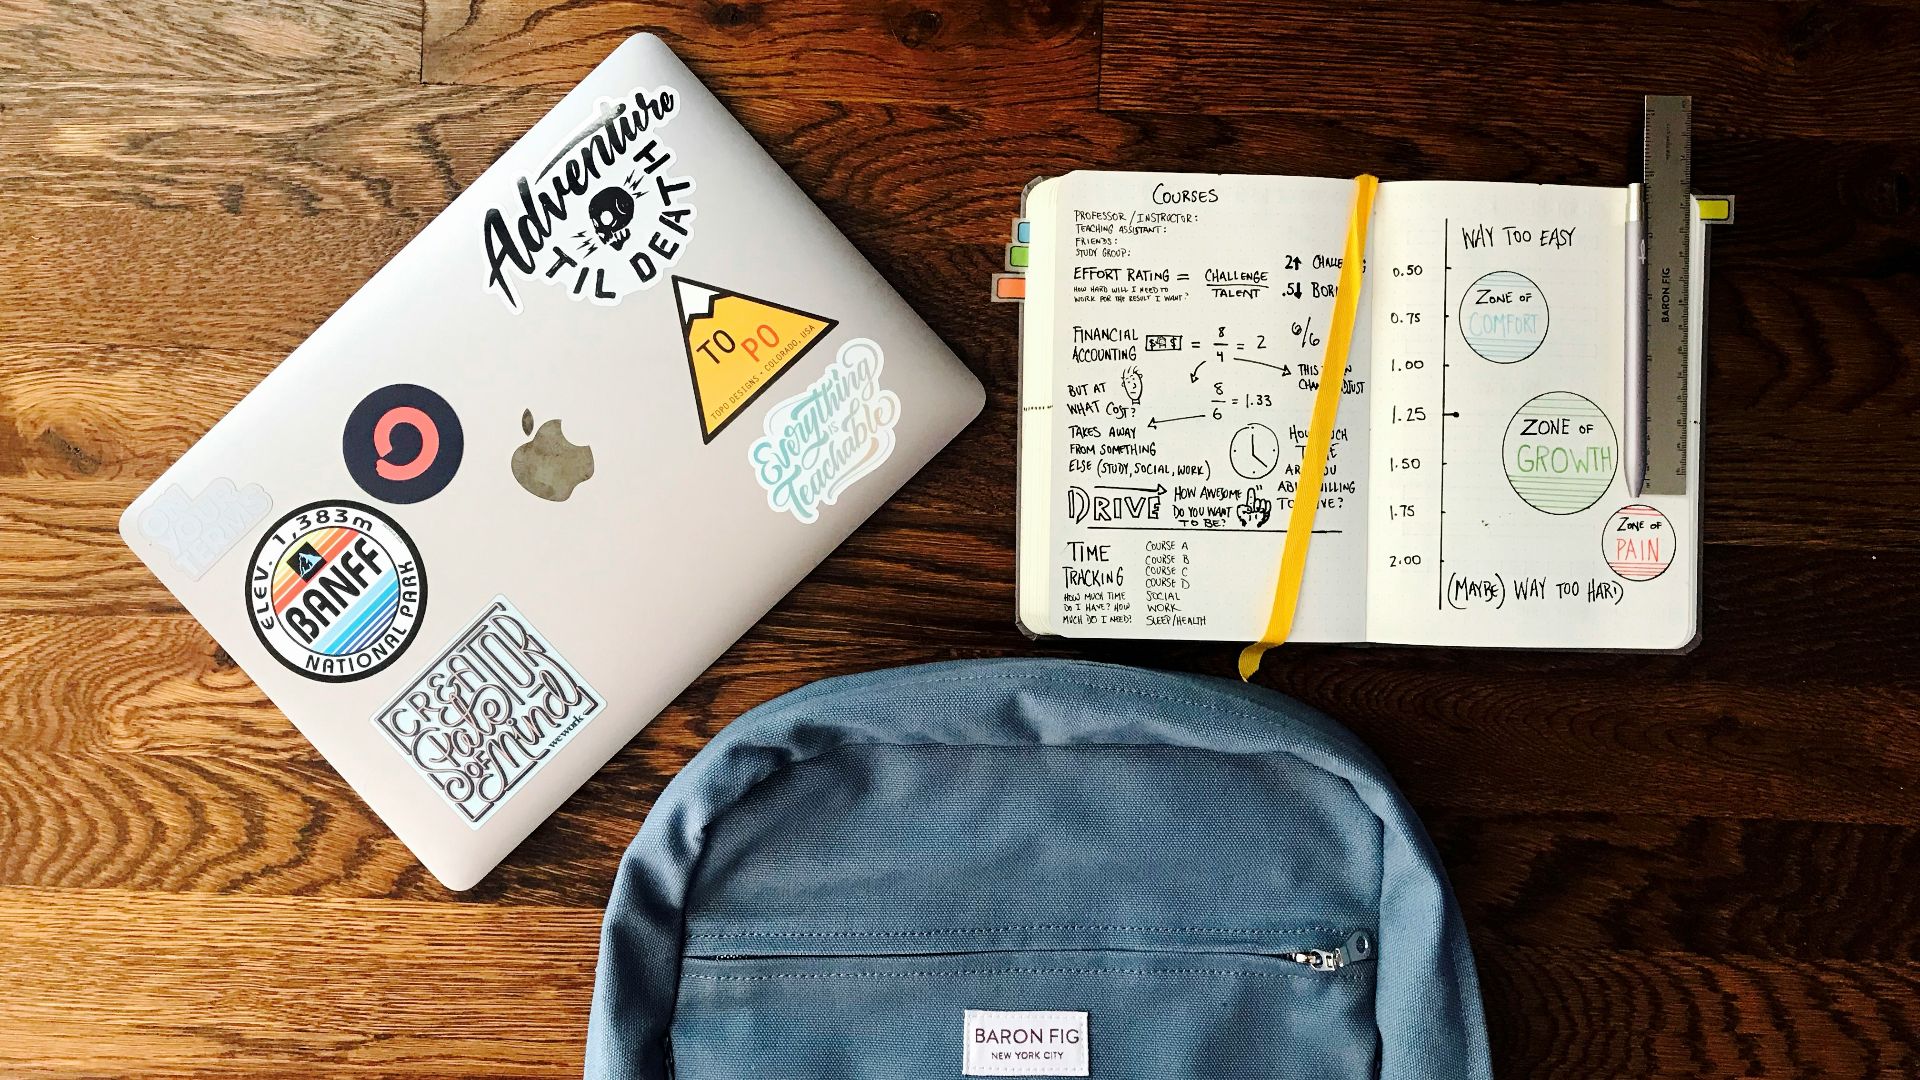 Adventure
'TIL DEATH
TO PO
TOPO DESIGNS • COLORADO, USA
Everything
IS
Teachable
ON
YOUR
TERMS
ELEV. 1,383m
BANFF
NATIONAL PARK
CREATOR
IS A
STATE
OF
Mind
wework
COURSES
PROFESSOR / INSTRUCTOR:
TEACHING ASSISTANT:
FRIENDS:
STUDY GROUP:
EFFORT RATING = CHALLENGE
TALENT
HOW HARD WILL I NEED TO
WORK FOR THE RESULT I WANT?
2↑
.5↓
FINANCIAL
ACCOUNTING
$ $ = 8/4 = 2
6/6
THIS
BUT AT
WHAT COST?
8/6 = 1.33
TAKES AWAY
FROM SOMETHING
ELSE (STUDY, SOCIAL, WORK)
DRIVE
HOW AWESOME
DO YOU WANT
TO BE?
TIME
TRACKING
HOW MUCH TIME
DO I HAVE? HOW
MUCH DO I NEED?
COURSE A
COURSE B
COURSE C
COURSE D
SOCIAL
WORK
SLEEP/HEALTH
WAY TOO EASY
0.50
0.75
1.00
1.25
1.50
1.75
2.00
ZONE OF
COMFORT
ZONE OF
GROWTH
ZONE OF
PAIN
(MAYBE) WAY TOO HARD
BARON FIG
BARON FIG
NEW YORK CITY